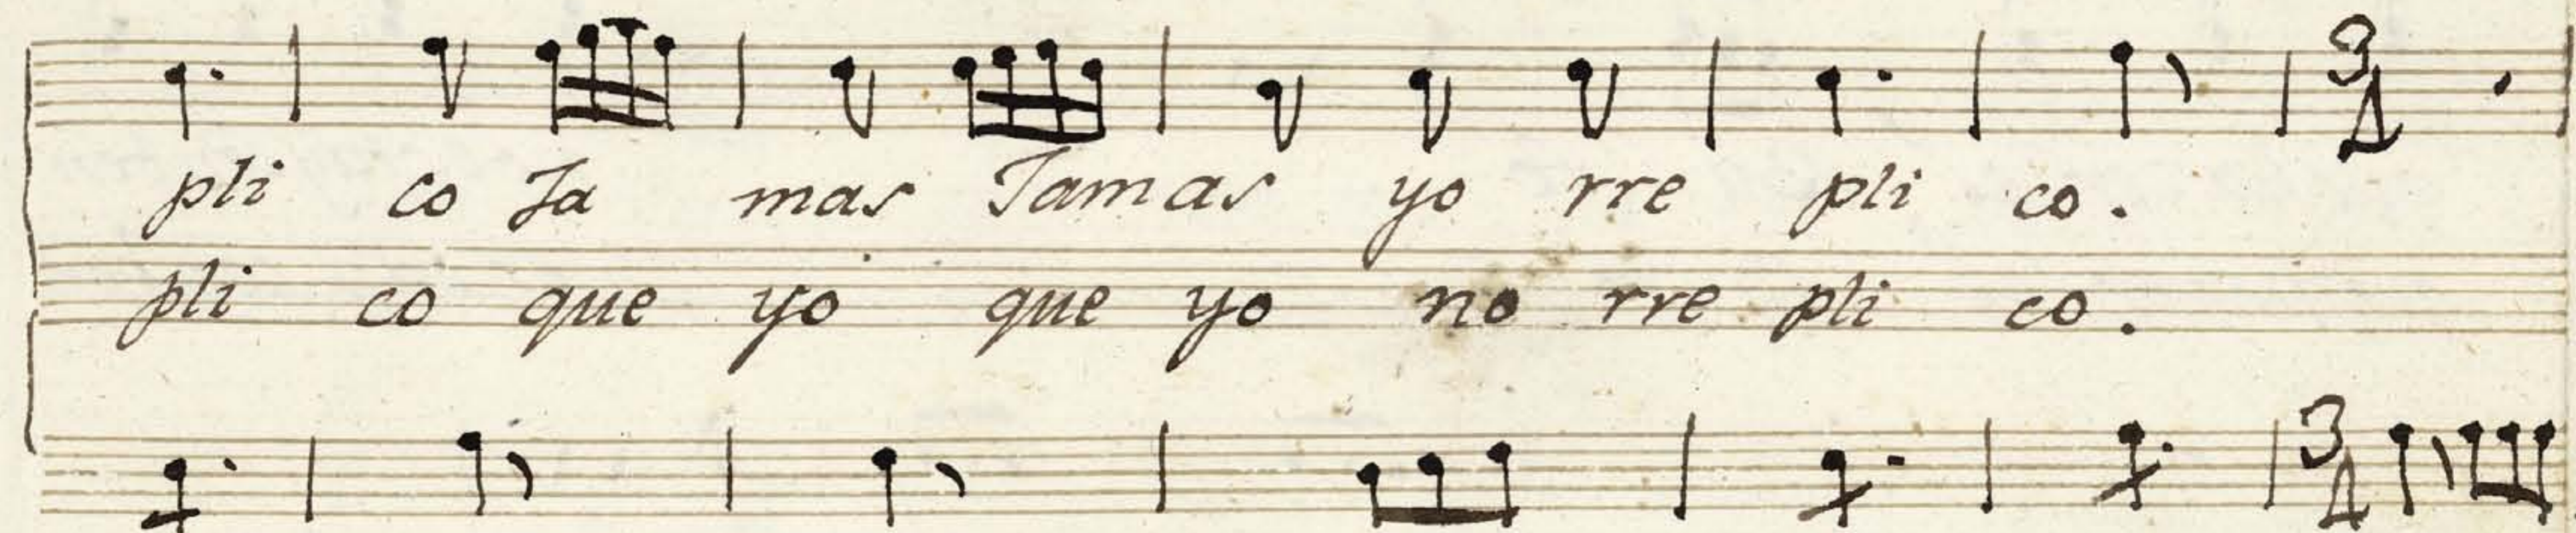 3
4
pli co Ja mas Jamas yo rre pli co.
pli co que yo que yo no rre pli co.
3
4